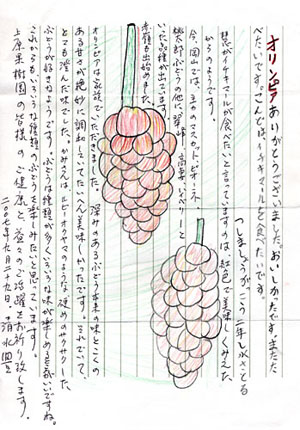 オリンピアありがとうございました。おいしかったです。またた
べたいです。こんどは、イチキマルを食べたいです。
つしましょうがっこう二年しみずさとる
慧がイチキマルが食べたいと言っていますのは紅色で美味しくみえた
からのようです。
今、岡山では、主のマスカット、ピオネ
桃太郎ぶどうの他に翠峰、高妻、ベリーAと
いった品種が出ています。
赤嶺も出始めました。
オリンピアは家族でいただきました。深みのあるぶどう本来の味とこくの
ある甘さが絶妙に調和していてたいへん美味しかったです。それでいて、
とても澄んだ味でした。かみえんはルビーオクヤマのような硬めのサクサクした
ぶどうが好きなようです。ぶどうは種類が多くいろいろな味が楽しめる気がいいですね。
これからもいろいろな種類のぶどうを楽しみたいと思っています。
上原果樹園の皆様のご健康と益々のご活躍をお祈り致します。
二〇〇七年九月二十九日、清水